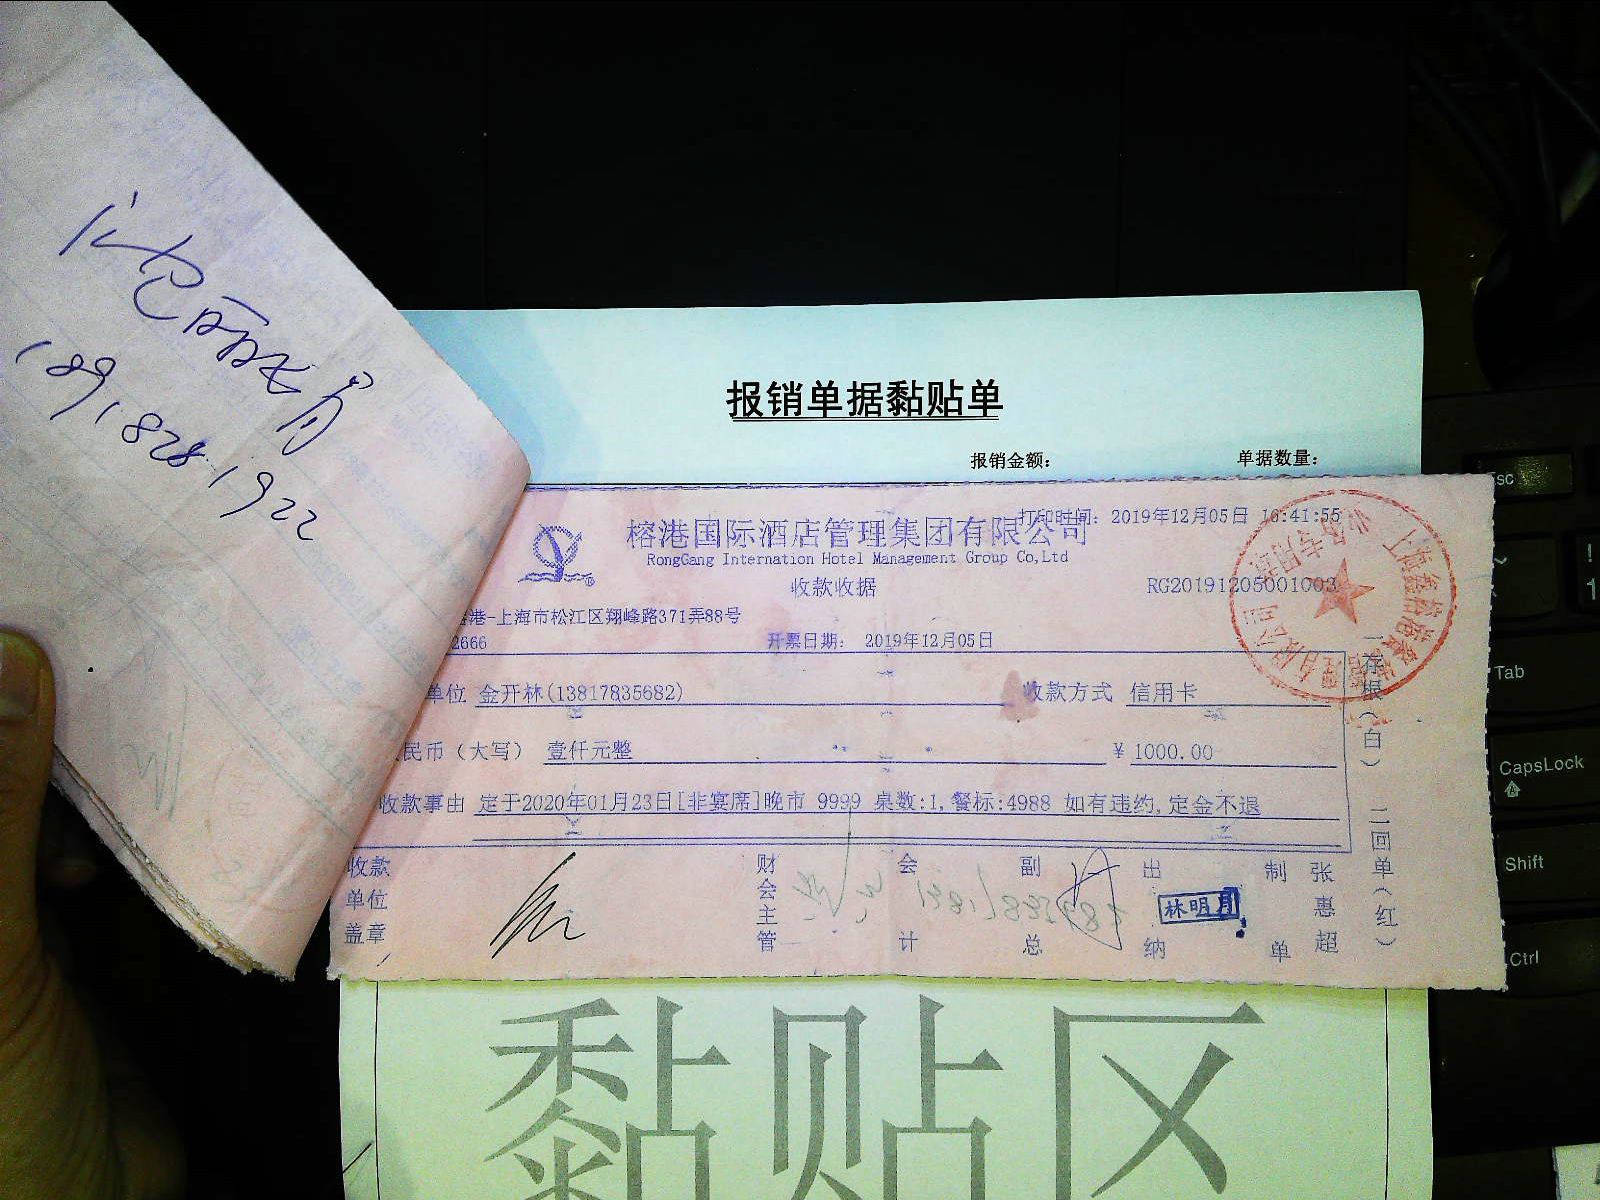 18918281922
报销单据黏贴单
报销金额： 单据数量：
打印时间：2019年12月05日 16:41:55
榕港国际酒店管理集团有限公司
RongGang Internation Hotel Management Group Co,Ltd
收款收据 RG20191205001003
港-上海市松江区翔峰路371弄88号
2666 开票日期： 2019年12月05日
单位 金开林(13817835682) 收款方式 信用卡
民币（大写） 壹仟元整 ¥ 1000.00
收款事由 定于2020年01月23日[非宴席]晚市 9999 桌数:1,餐标:4988 如有违约,定金不退
收款单位盖章 财会主管 会计 副总 出纳 林明月 制单 张惠超
一存根（白） 二回单（红）
黏贴区
Tab
CapsLock
Shift
Ctrl